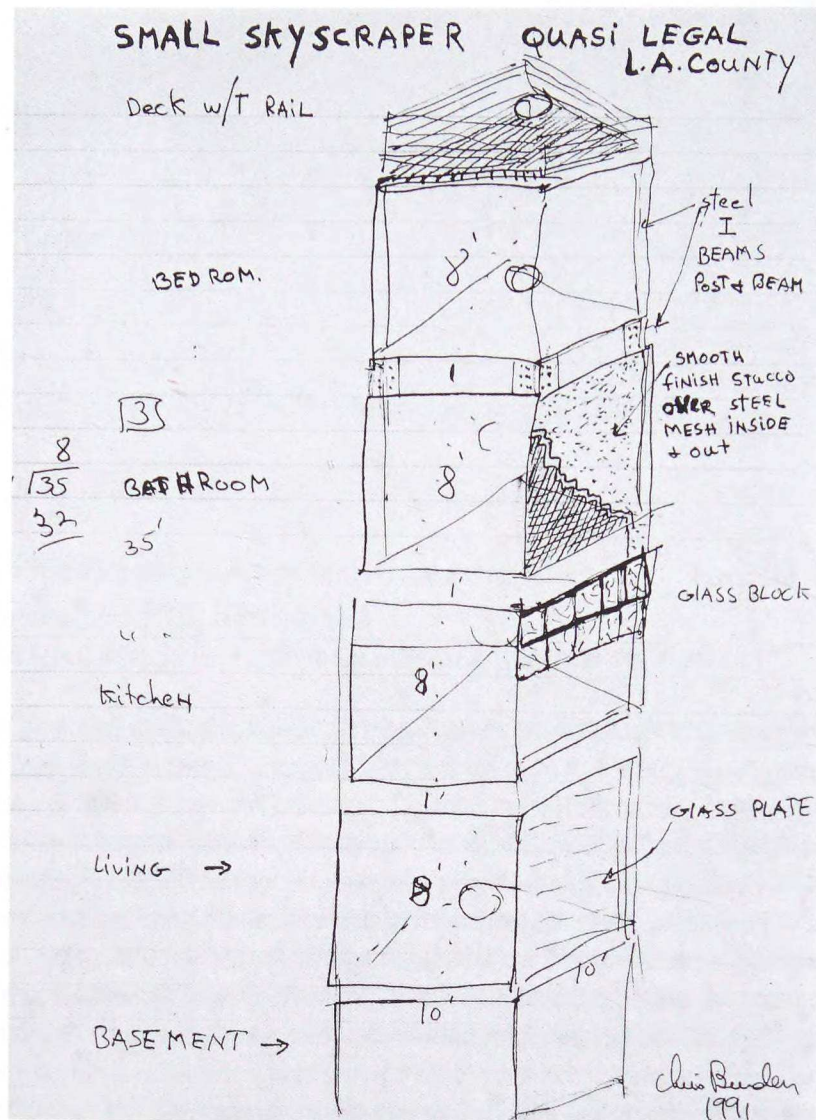 SMALL SKYSCRAPER QUASI LEGAL
L.A. COUNTY
Deck w/T RAIL
steel
I
BEAMS
POST & BEAM
8'
BEDROM.
1
SMOOTH
FINISH STUCCO
OVER STEEL
MESH INSIDE
& OUT
3
8
35
32
BATHROOM
35'
8'
1'
GLASS BLOCK
8'
Kitchen
1'
GLASS PLATE
LIVING →
8'
10'
10'
BASEMENT →
Chris Burden
1991